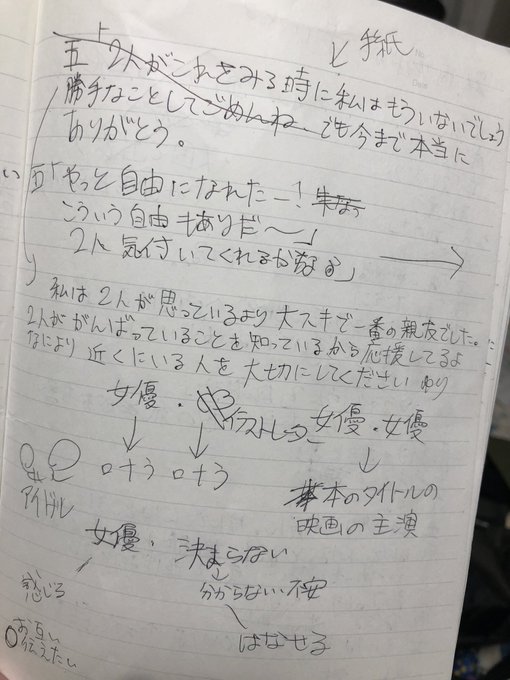 手紙
五「2人がこれをみる時に私はもういないでしょう
勝手なことしてごめんね、でも今まで本当に
ありがとう。
五「やっと自由になれたー!
こういう自由もありだ〜」
2人気付いてくれるかなぁ」
私は2人が思っているより大スキで一番の親友でした。
2人ががんばっていることを知っているから応援してるよ
なにより近くにいる人を大切にしてください
女優・イラストレーター 女優・女優
叶う 叶う
アイドル
本のタイトルの
映画の主演
女優、決まらない
感じる
分からない・不安
はなせる
お互い
伝えたい